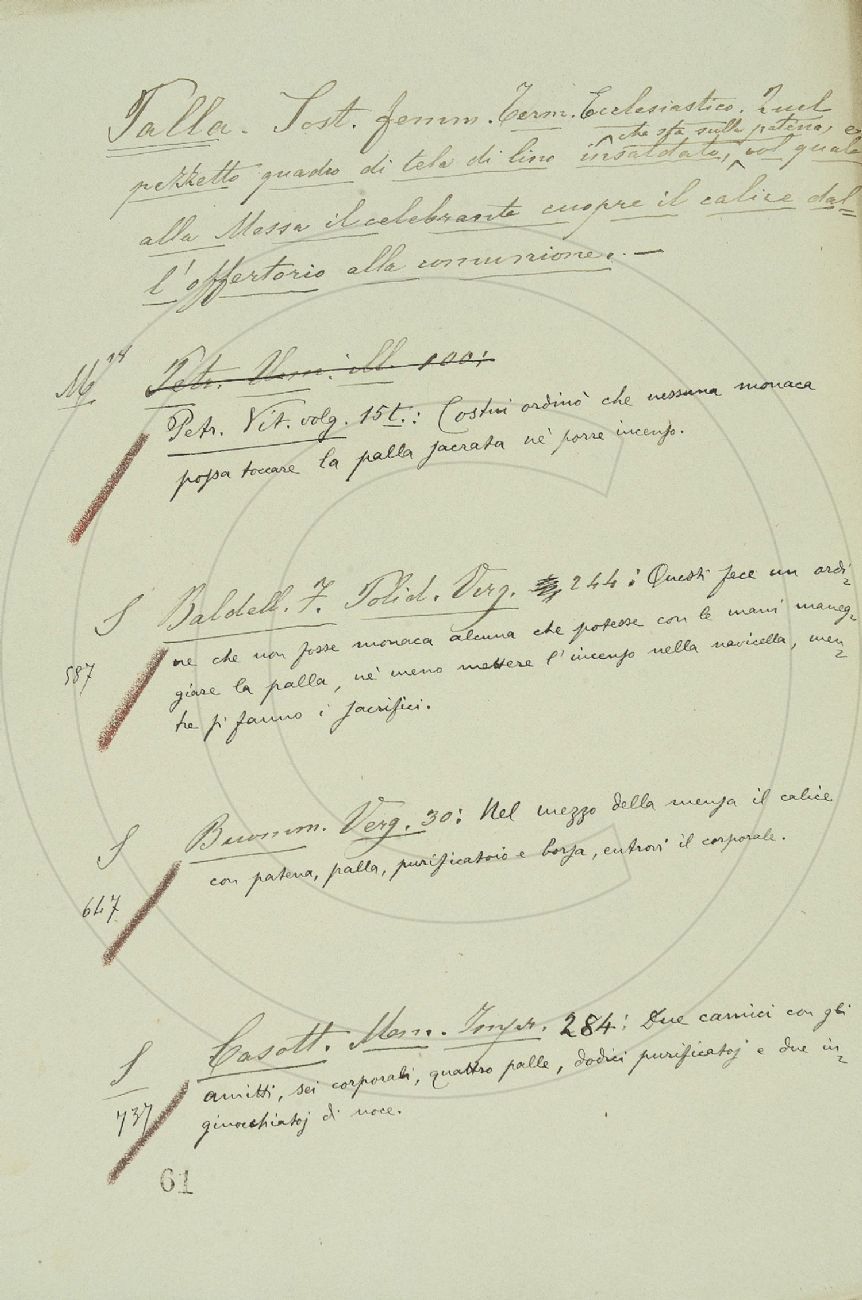 Palla. Sost. femm. Term. Ecclesiastico. Quel
che sta sulla patena, e
pezzetto quadro di tela di lino insaldata, col quale
alla Messa il celebrante cuopre il calice dal=
l'offertorio alla comunione. —
M 
Petr. Vit. volg. 15t.: Costui ordinò che nessuna monaca
possa toccare la palla sacrata nè porre incenso.
S Baldell. F. Polid. Verg. 244: Questi fece un ordi=
587 ne che non fosse monaca alcuna che potesse con le mani maneg=
giare la palla, nè meno mettere l'incenso nella navicella, men=
tre si fanno i sacrifici.
S Buomm. Verg. 30: Nel mezzo della mensa il calice
647 con patena, palla, purificatoio e borsa, entrovi il corporale.
S Casott. Mem. Impr. 284: Due camici con gli
737 amitti, sei corporali, quattro palle, dodici purificatoj e due in=
ginocchiatoj di noce.
61